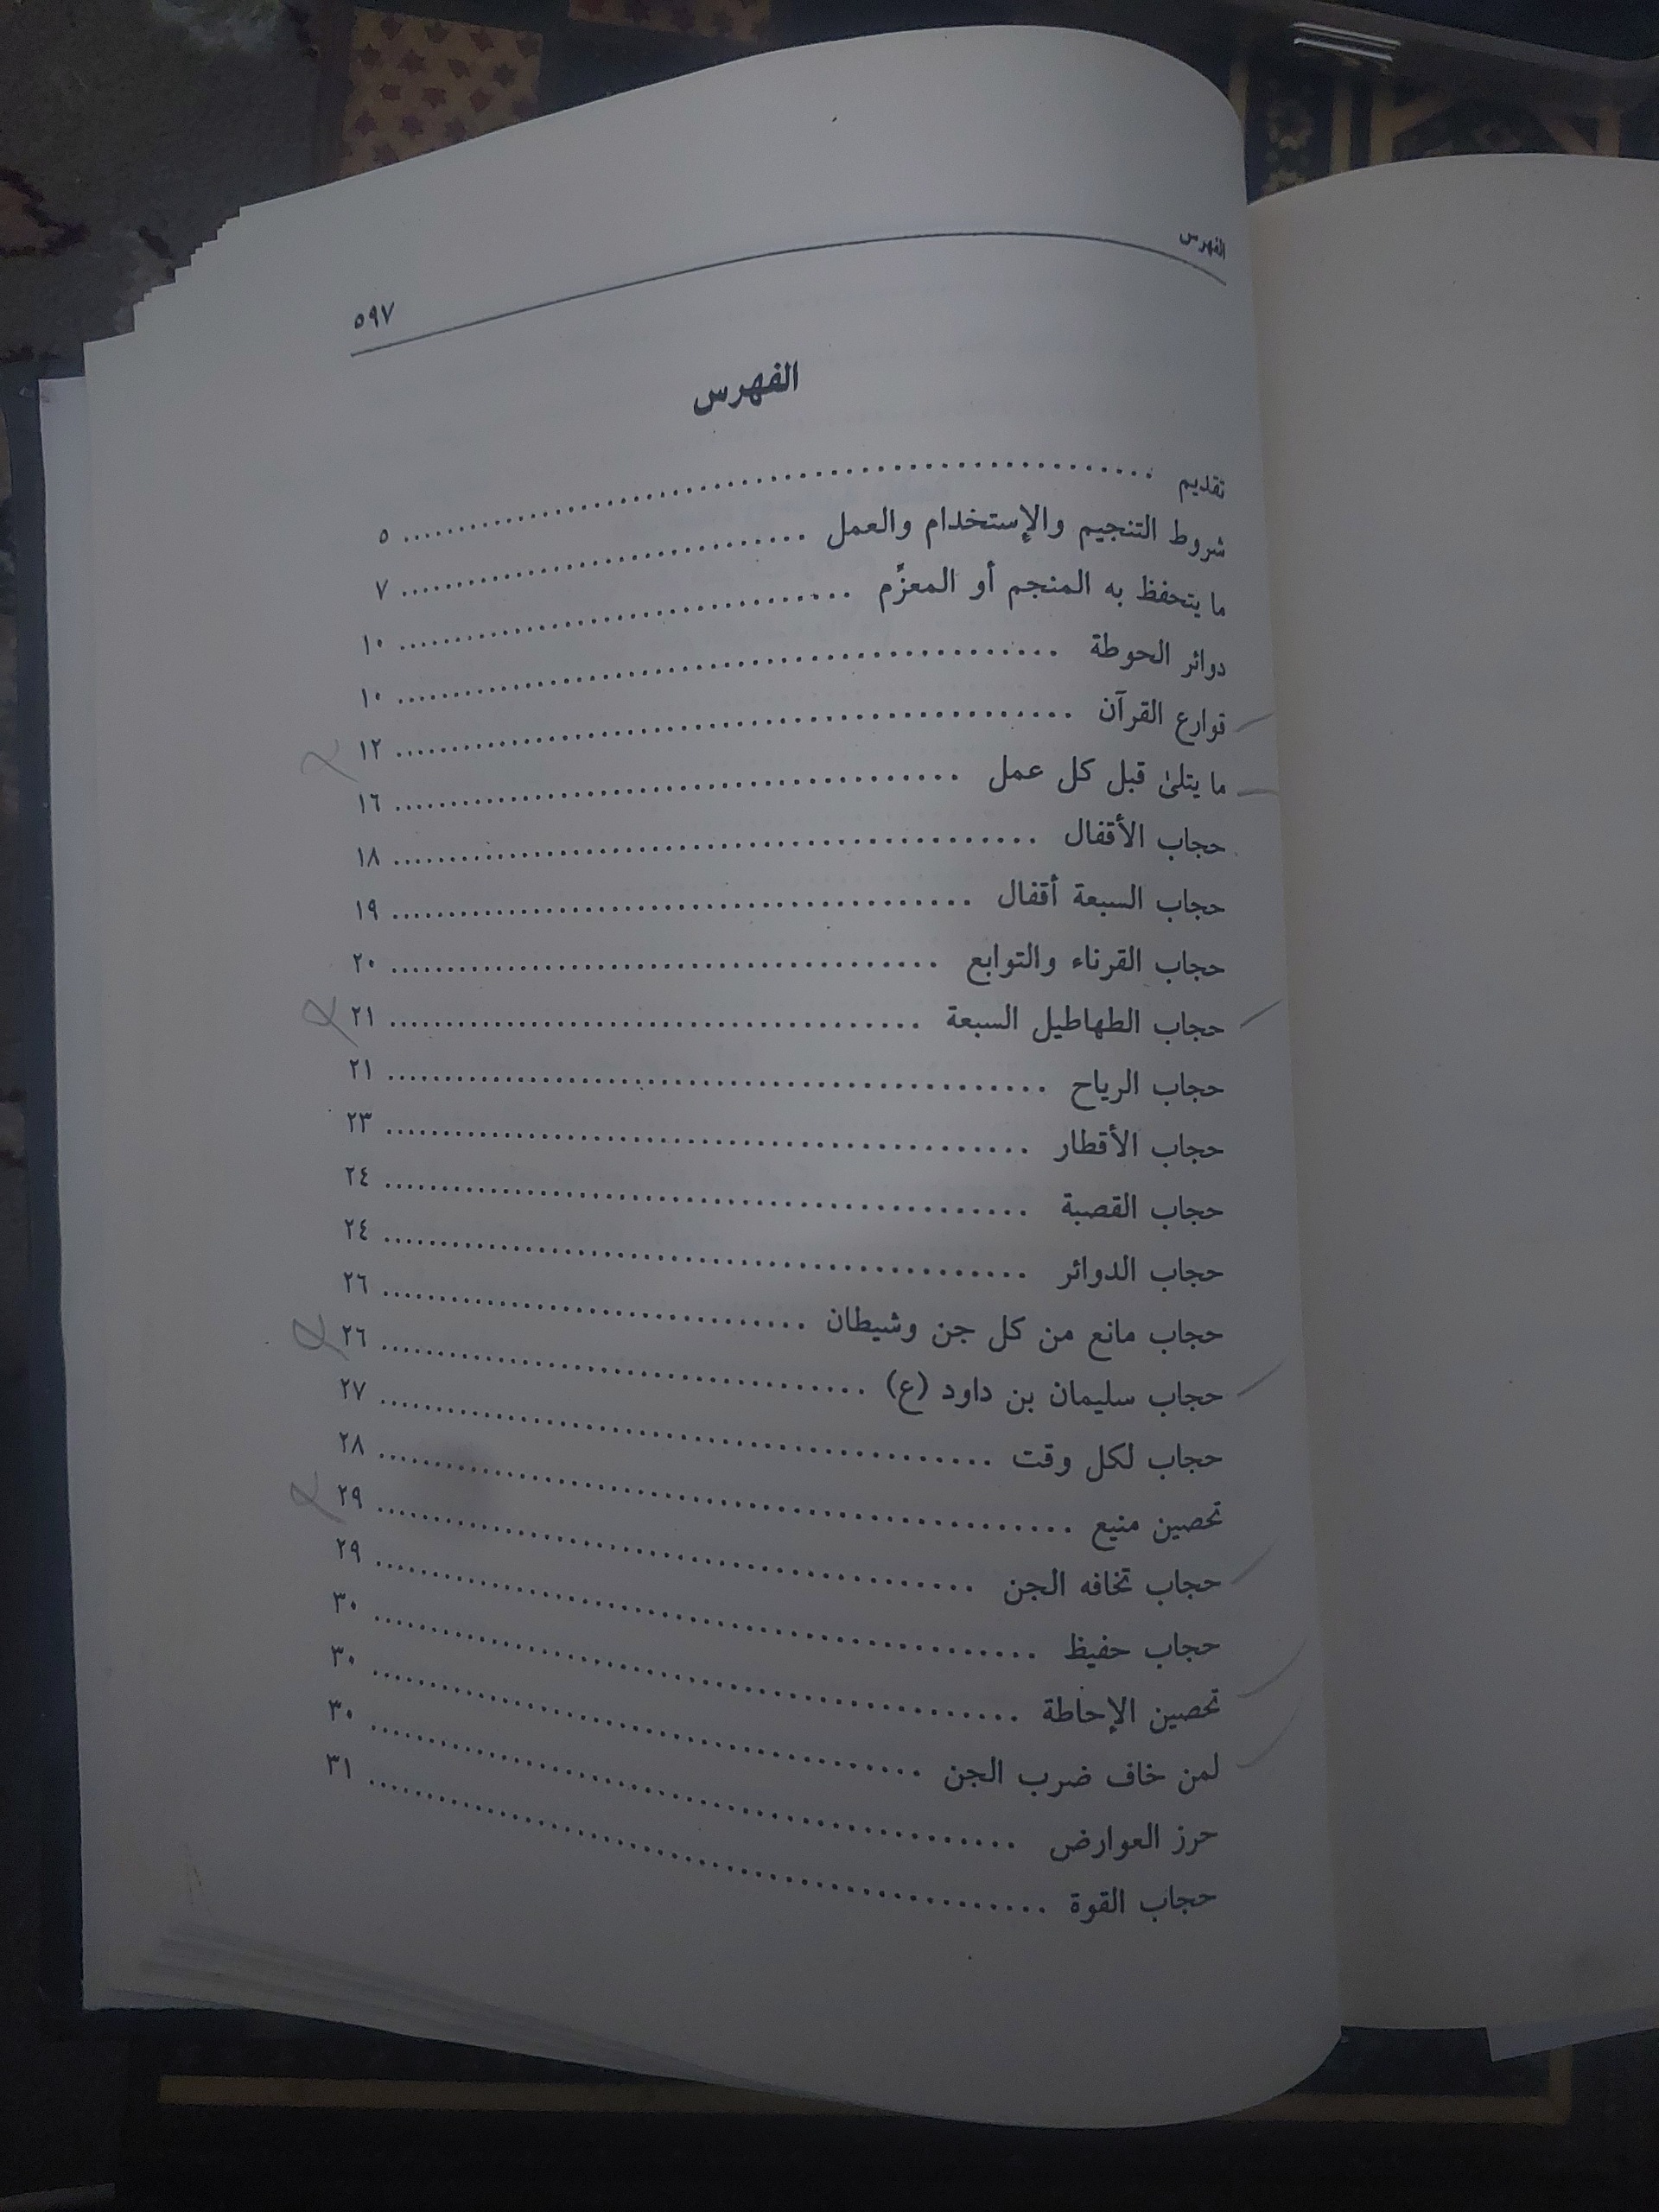 الفهرس
٥٩٧
الفهرس
تقديم ........ ٥
شروط التنجيم والإستخدام والعمل ........ ٧
ما يتحفظ به المنجم أو المعزِّم ........ ١٠
دوائر الحوطة ........ ١٠
قوارع القرآن ........ ١٢
ما يتلىٰ قبل كل عمل ........ ١٦
حجاب الأقفال ........ ١٨
حجاب السبعة أقفال ........ ١٩
حجاب القرناء والتوابع ........ ٢٠
حجاب الطهاطيل السبعة ........ ٢١
حجاب الرياح ........ ٢١
حجاب الأقطار ........ ٢٣
حجاب القصبة ........ ٢٤
حجاب الدوائر ........ ٢٤
حجاب مانع من كل جن وشيطان ........ ٢٦
حجاب سليمان بن داود (ع) ........ ٢٦
حجاب لكل وقت ........ ٢٧
تحصين منيع ........ ٢٨
حجاب تخافه الجن ........ ٢٩
حجاب حفيظ ........ ٢٩
تحصين الإحاطة ........ ٣٠
لمن خاف ضرب الجن ........ ٣٠
حرز العوارض ........ ٣٠
حجاب القوة ........ ٣١